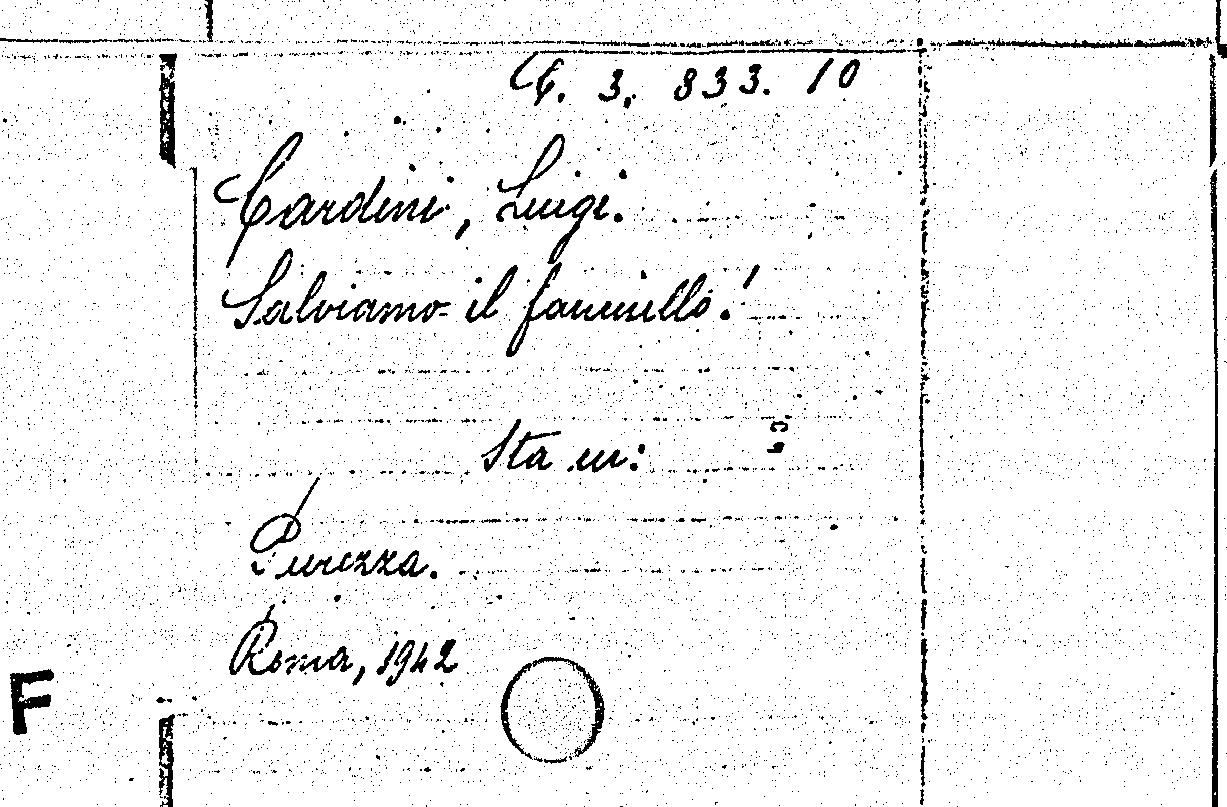 C. 3. 833. 10
Cardini, Luigi.
Salviamo il fanciullo!
Sta in:
Purezza.
Roma, 1942
F